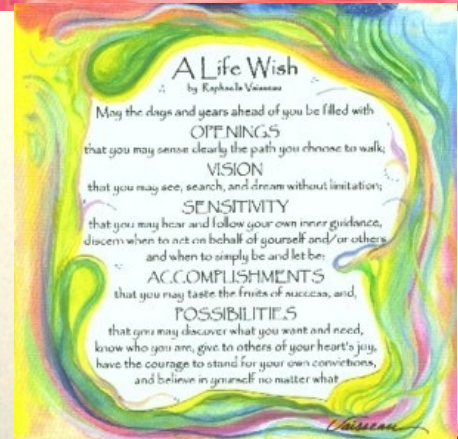 A Life Wish
by Raphaella Vaisseau
May the days and years ahead of you be filled with
OPENINGS
that you may sense clearly the path you choose to walk;
VISION
that you may see, search, and dream without limitation;
SENSITIVITY
that you may hear and follow your own inner guidance,
discern when to act on behalf of yourself and/or others
and when to simply be and let be;
ACCOMPLISHMENTS
that you may taste the fruits of success, and,
POSSIBILITIES
that you may discover what you want and need,
know who you are, give to others of your heart's joy,
have the courage to stand for your own convictions,
and believe in yourself no matter what
Vaisseau